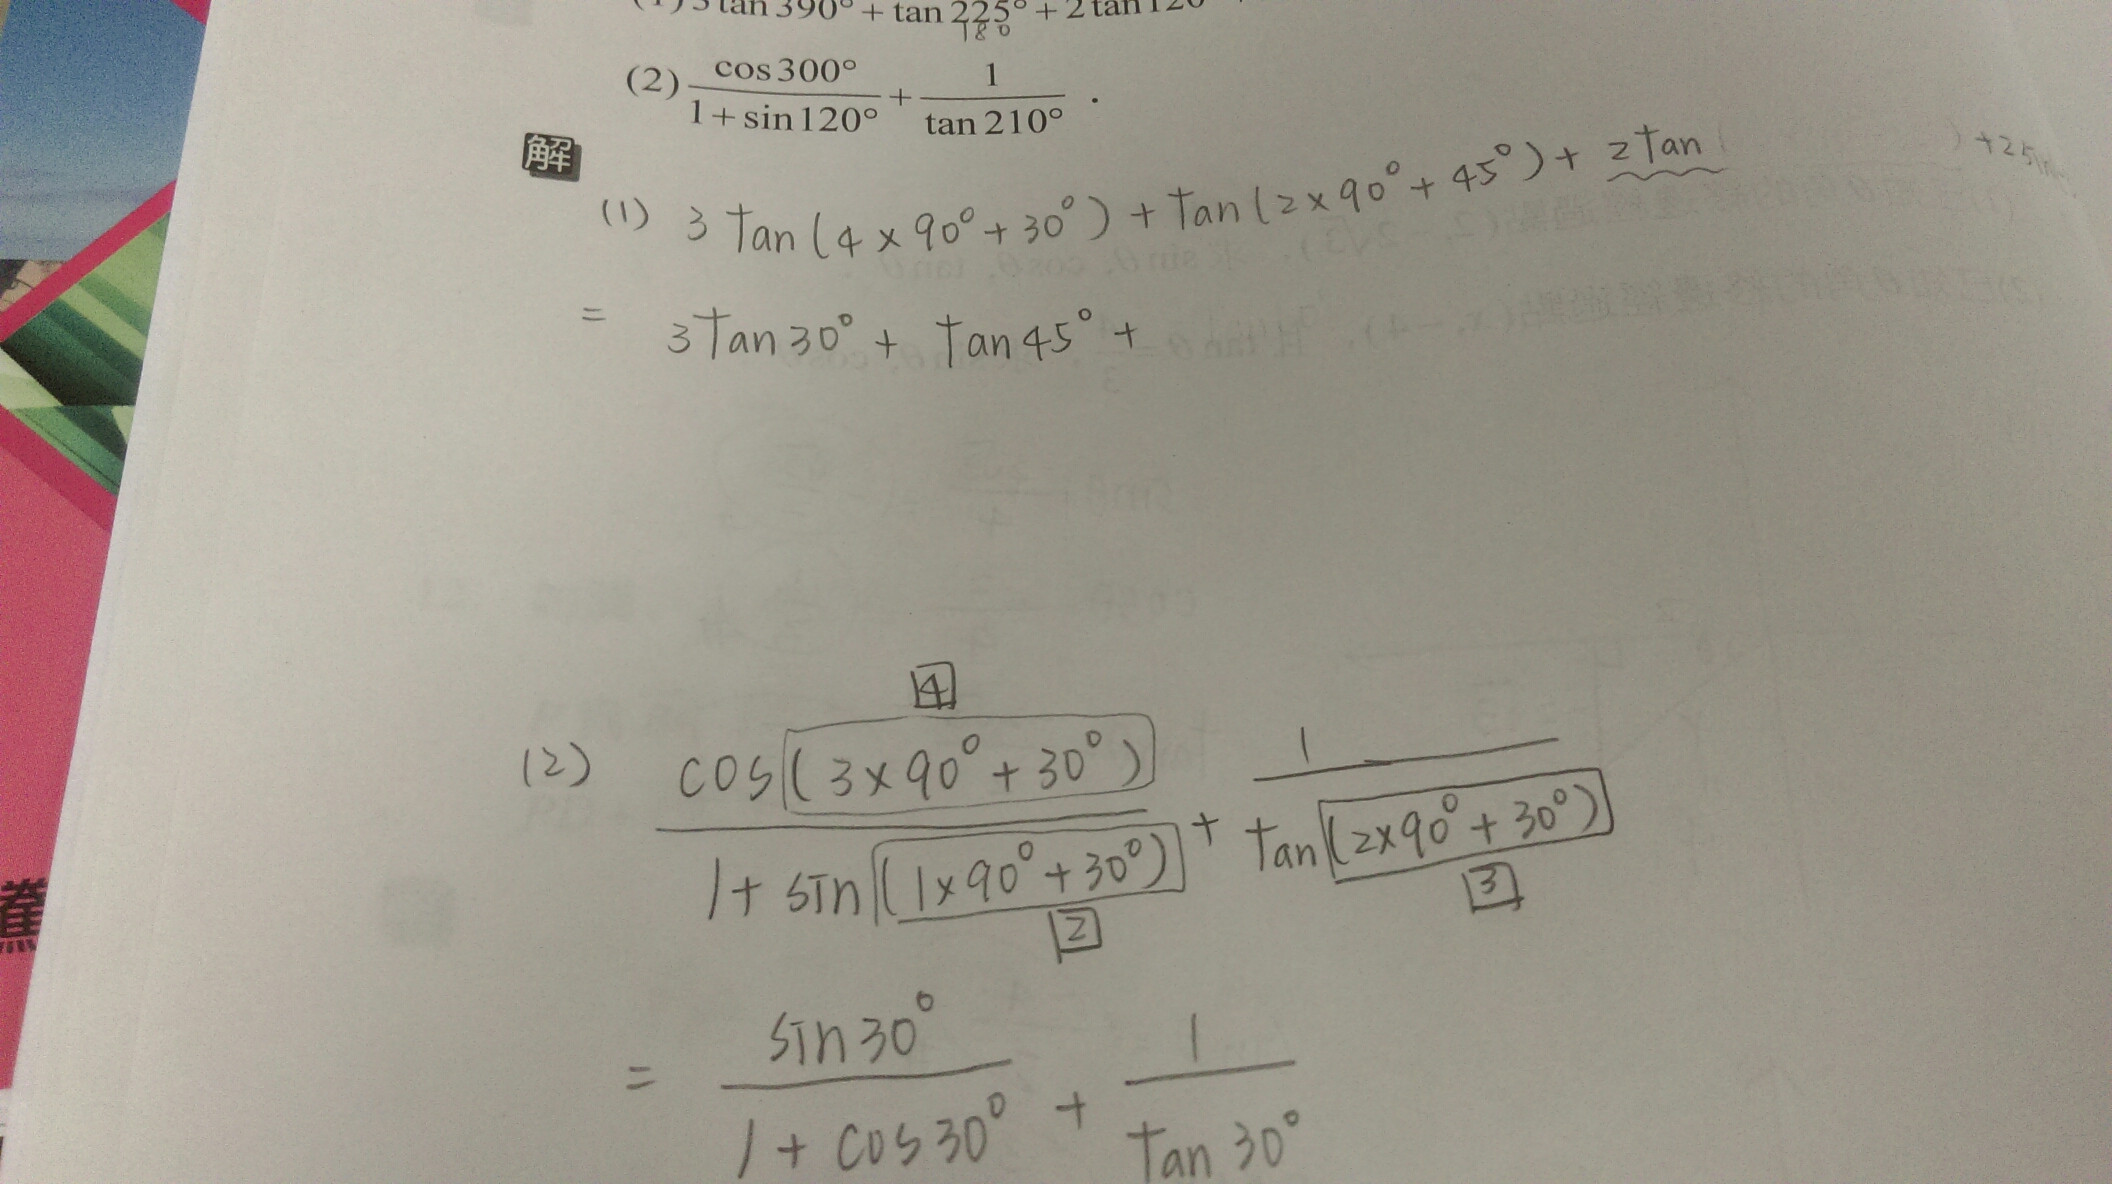 3 tan 390° + tan 225° + 2 tan 120°
180
(2) cos 300° / 1 + sin 120° + 1 / tan 210° .
解
(1) 3 tan (4 × 90° + 30°) + tan (2 × 90° + 45°) + 2 tan ) + 2 sin
= 3 tan 30° + tan 45° +
4
(2) cos (3 × 90° + 30°) / 1 + sin (1 × 90° + 30°) + 1 / tan (2 × 90° + 30°)
2 3
= sin 30° / 1 + cos 30° + 1 / tan 30°